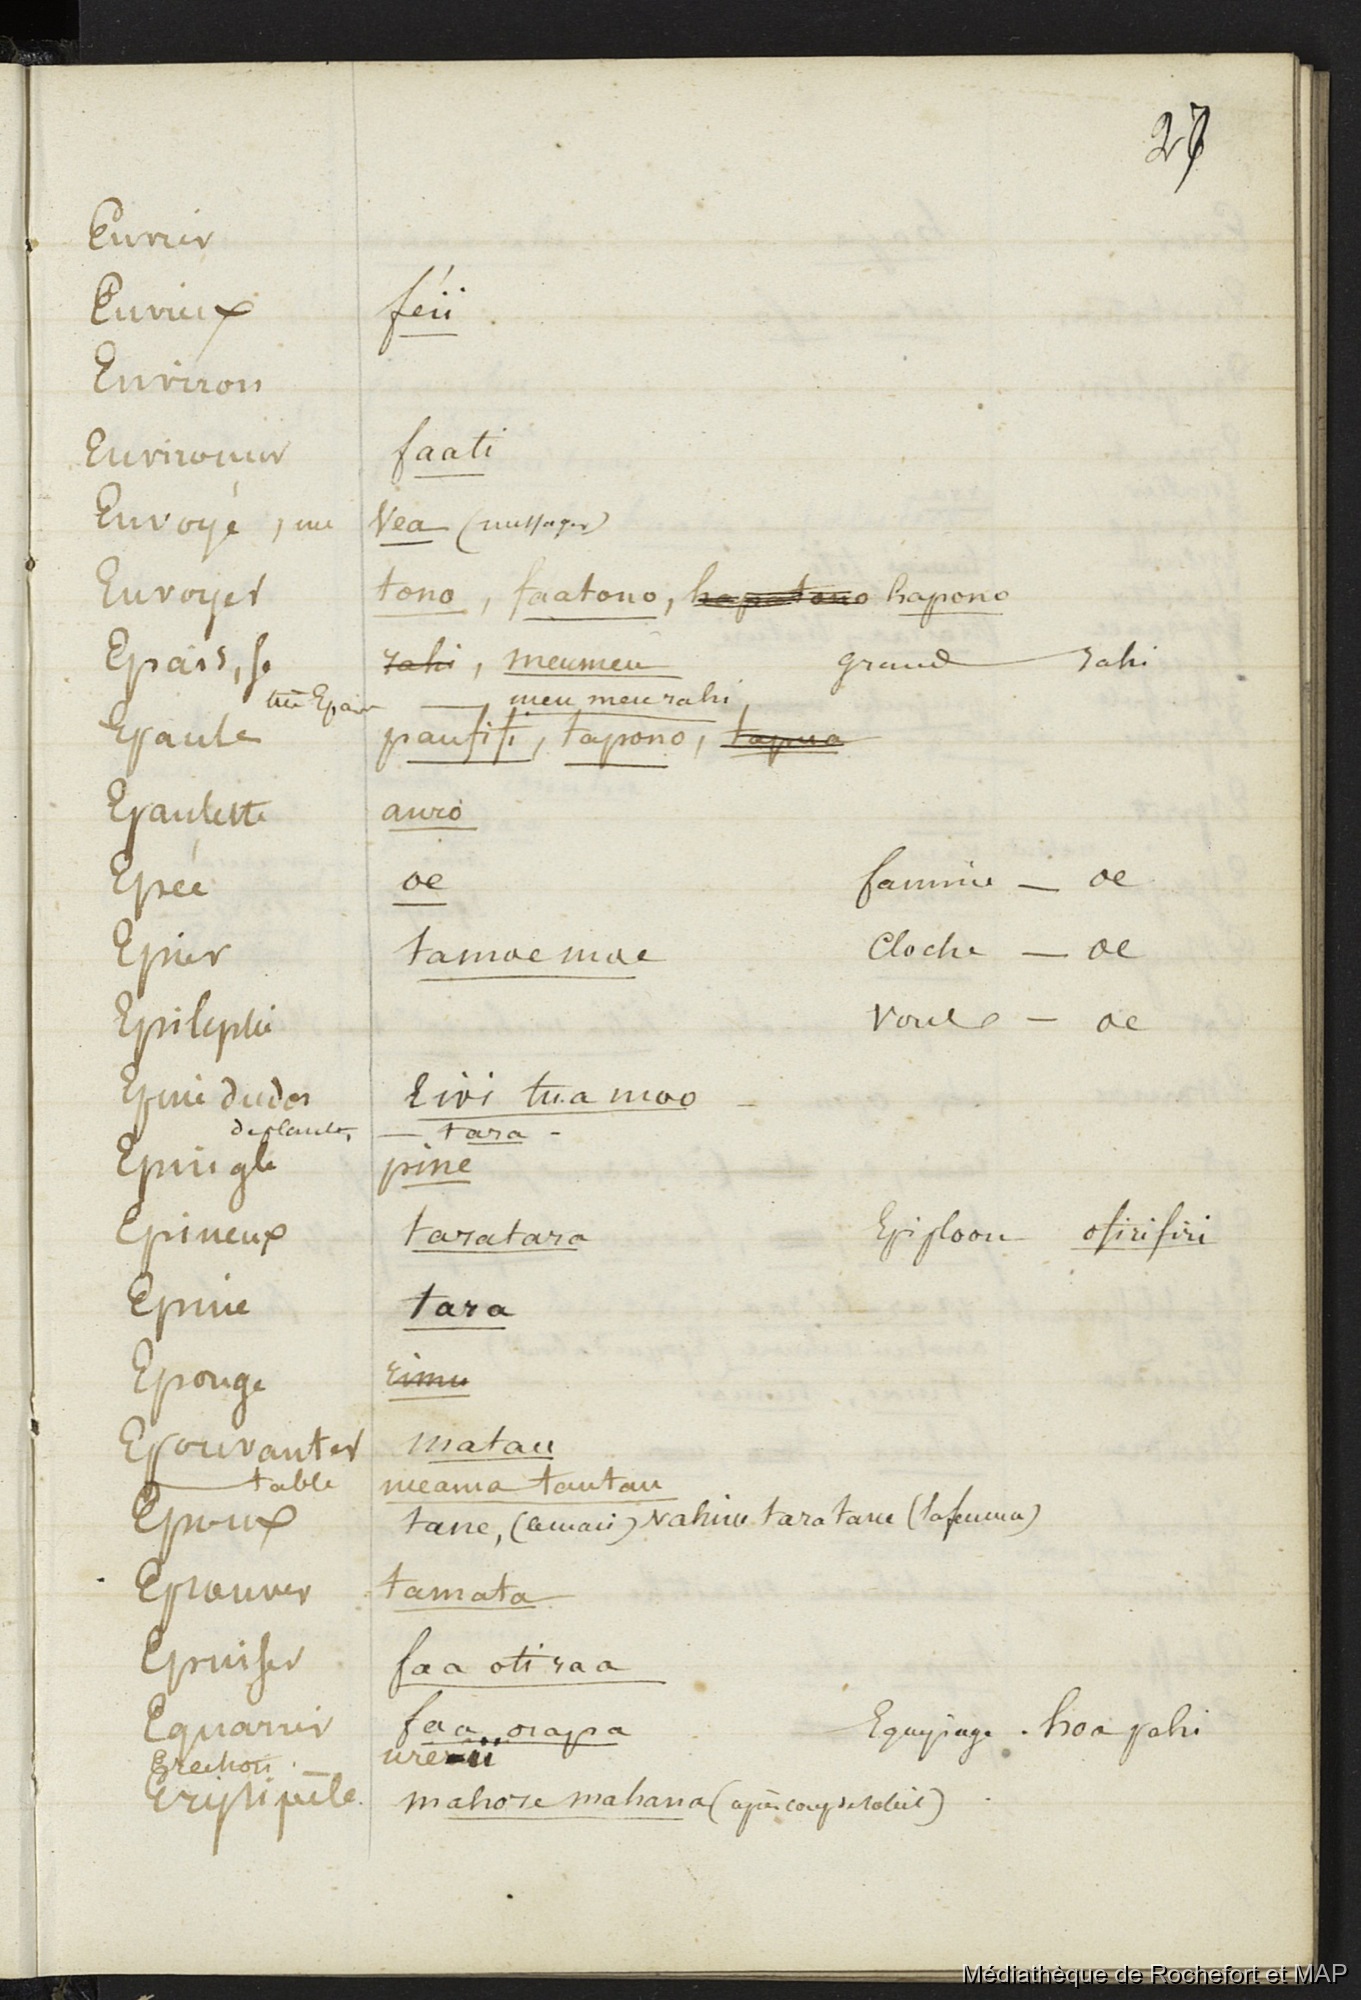 27
Envier
Envieux féii
Environ
Environner faati
Envoyé, ée Vea (messager)
Envoyer tono, faatono, hapatono hapono
Epais, se rahi, meumeu grand rahi
très Epais — meu meu rahi,
Epaule paufifi, tapono, tapua
Epaulette auro
Epée oe famine — oe
Epier tamoemoe Cloche — oe
Epilepsie oe
Epine du dos Eivi tua moo
de plante, — tara -
Epingle pine
Epineux taratara Epiploon ofirifiri
Epine tara
Eponge rimu
Epouvanter matau
— table meama tautau
Epoux tane, (le mari) vahine faratane (la femme)
Eprouver tamata
Epuiser faa oti raa
Equarrir faa orapa Equipage . hoa pahi
Erection . — ure
Erysipèle mahore mahana (après coup de soleil)
Médiathèque de Rochefort et MAP